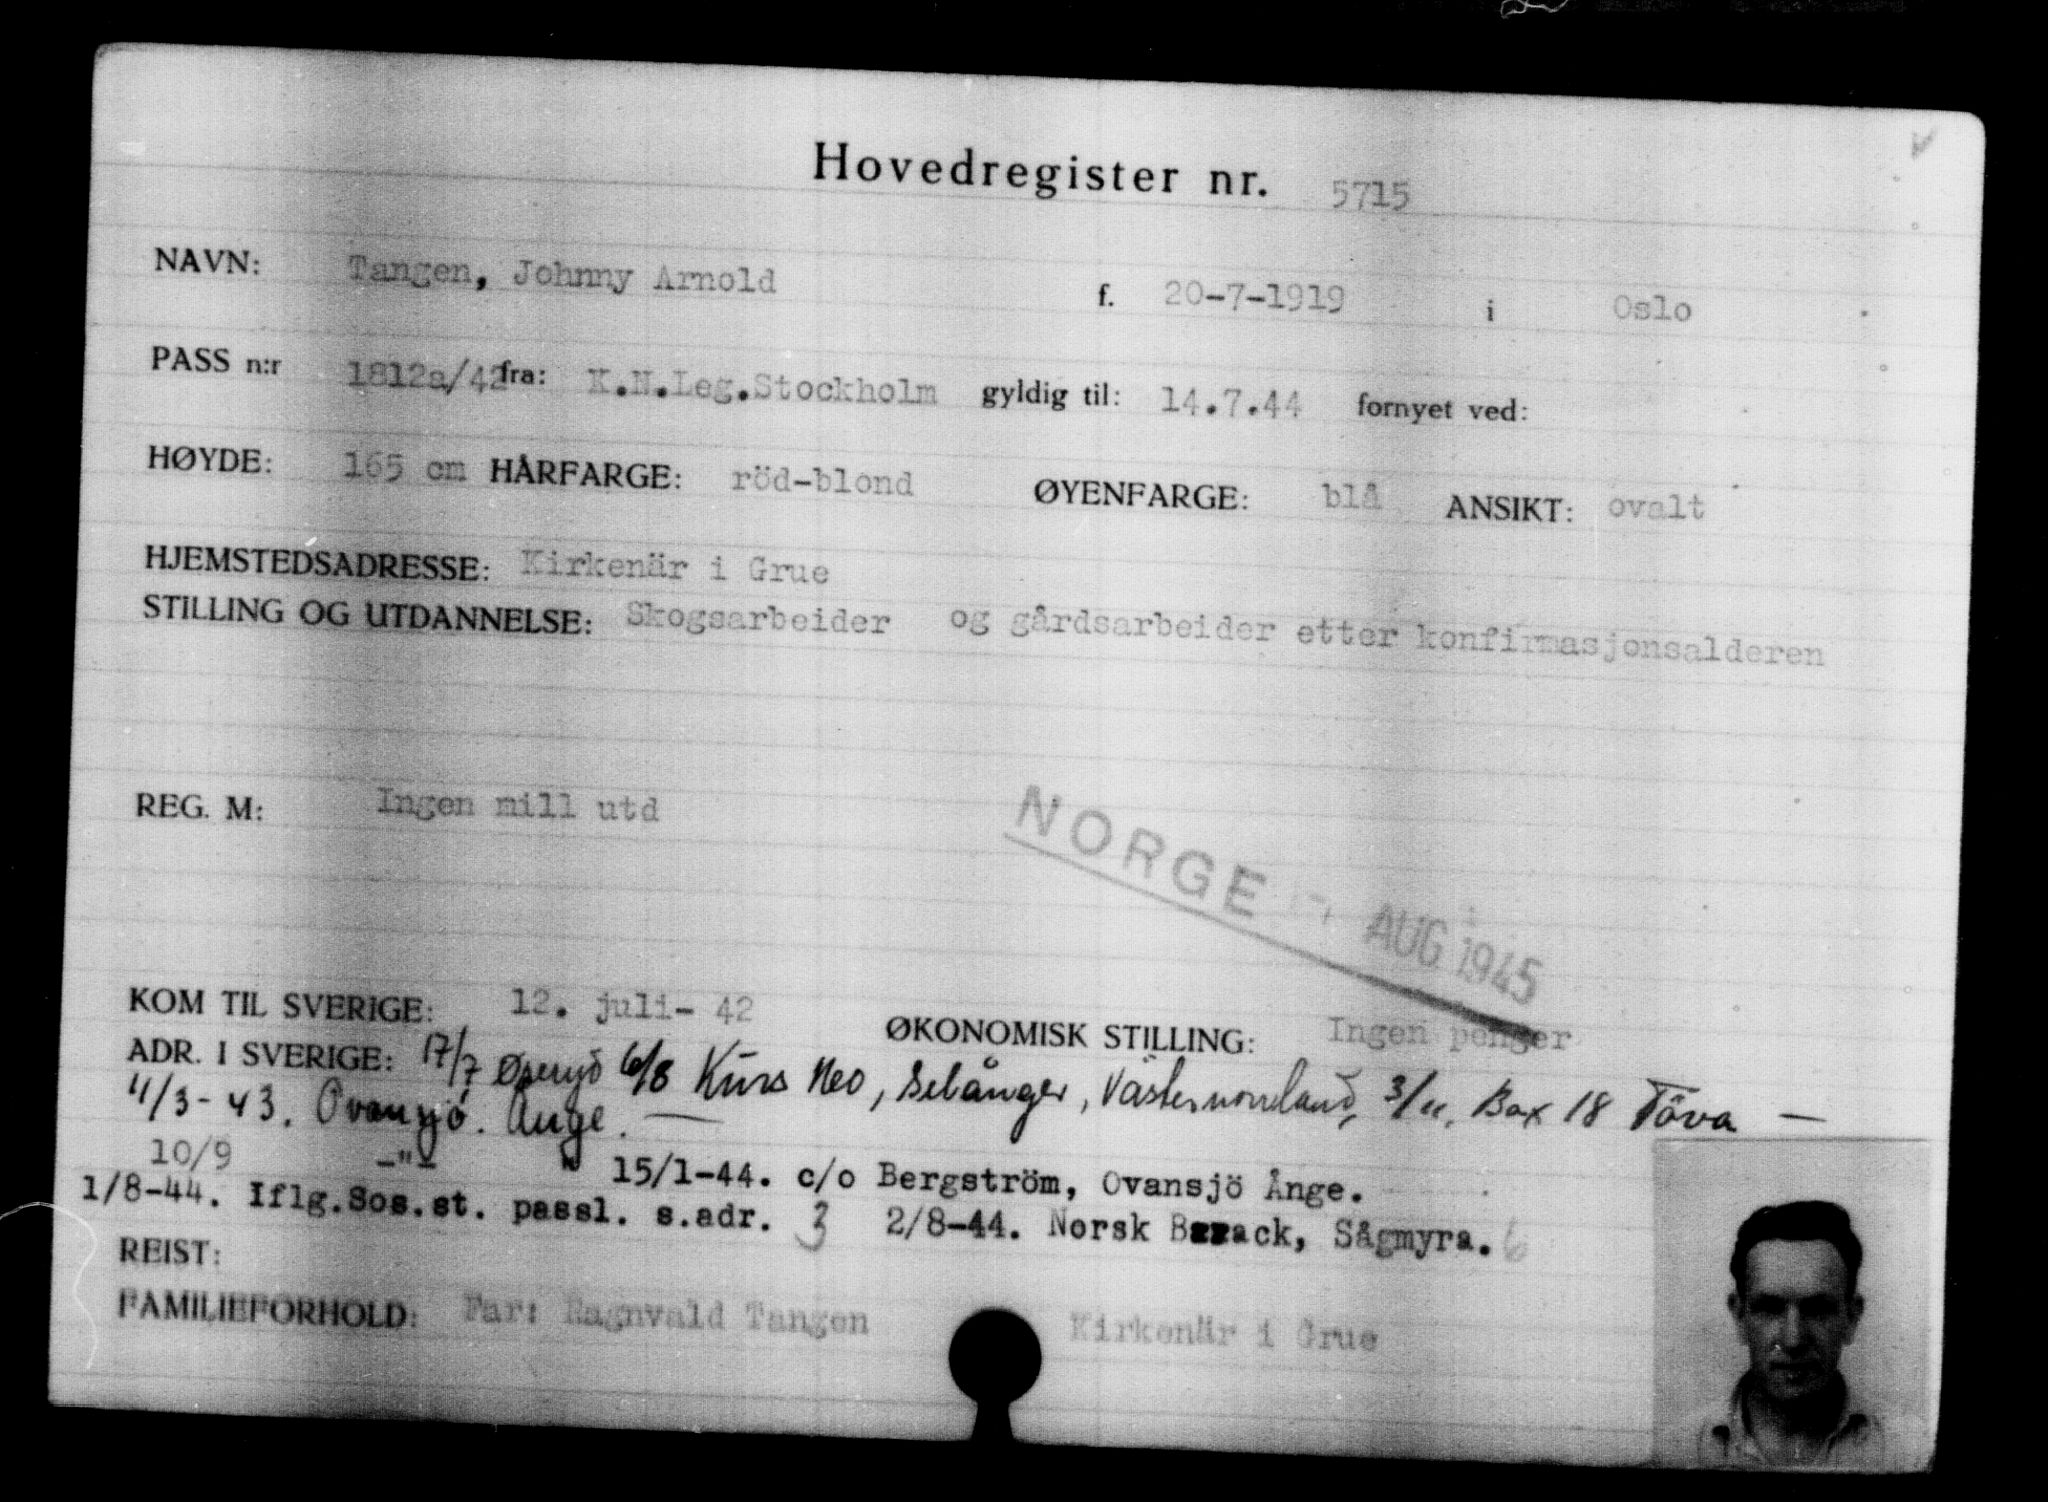 Hovedregister nr. 5715
NAVN: Tangen, Johnny Arnold f. 20-7-1919 i Oslo
PASS n:r 1812a/42 fra: K.N.Leg.Stockholm gyldig til: 14.7.44 fornyet ved:
HØYDE: 165 cm HÅRFARGE: röd-blond ØYENFARGE: blå ANSIKT: ovalt
HJEMSTEDSADRESSE: Kirkenär i Grue
STILLING OG UTDANNELSE: Skogsarbeider og gårdsarbeider etter konfirmasjonsalderen
REG. M: Ingen mill utd
NORGE AUG 1945
KOM TIL SVERIGE: 12. juli- 42 ØKONOMISK STILLING: Ingen penger
ADR. I SVERIGE: 17/7 6/8 Kurs Neo, Selånger, Västernorrland, 3/11. Box 18 Töva —
11/3-43. Ovansjö. Ånge. —
10/9 -"- " 15/1-44. c/o Bergström, Ovansjö Ånge.
1/8-44. Iflg.Sos.st. passl. s.adr. 3 2/8-44. Norsk Barack, Sågmyra. 6
REIST:
FAMILIEFORHOLD: Far: Ragnvald Tangen Kirkenär i Grue